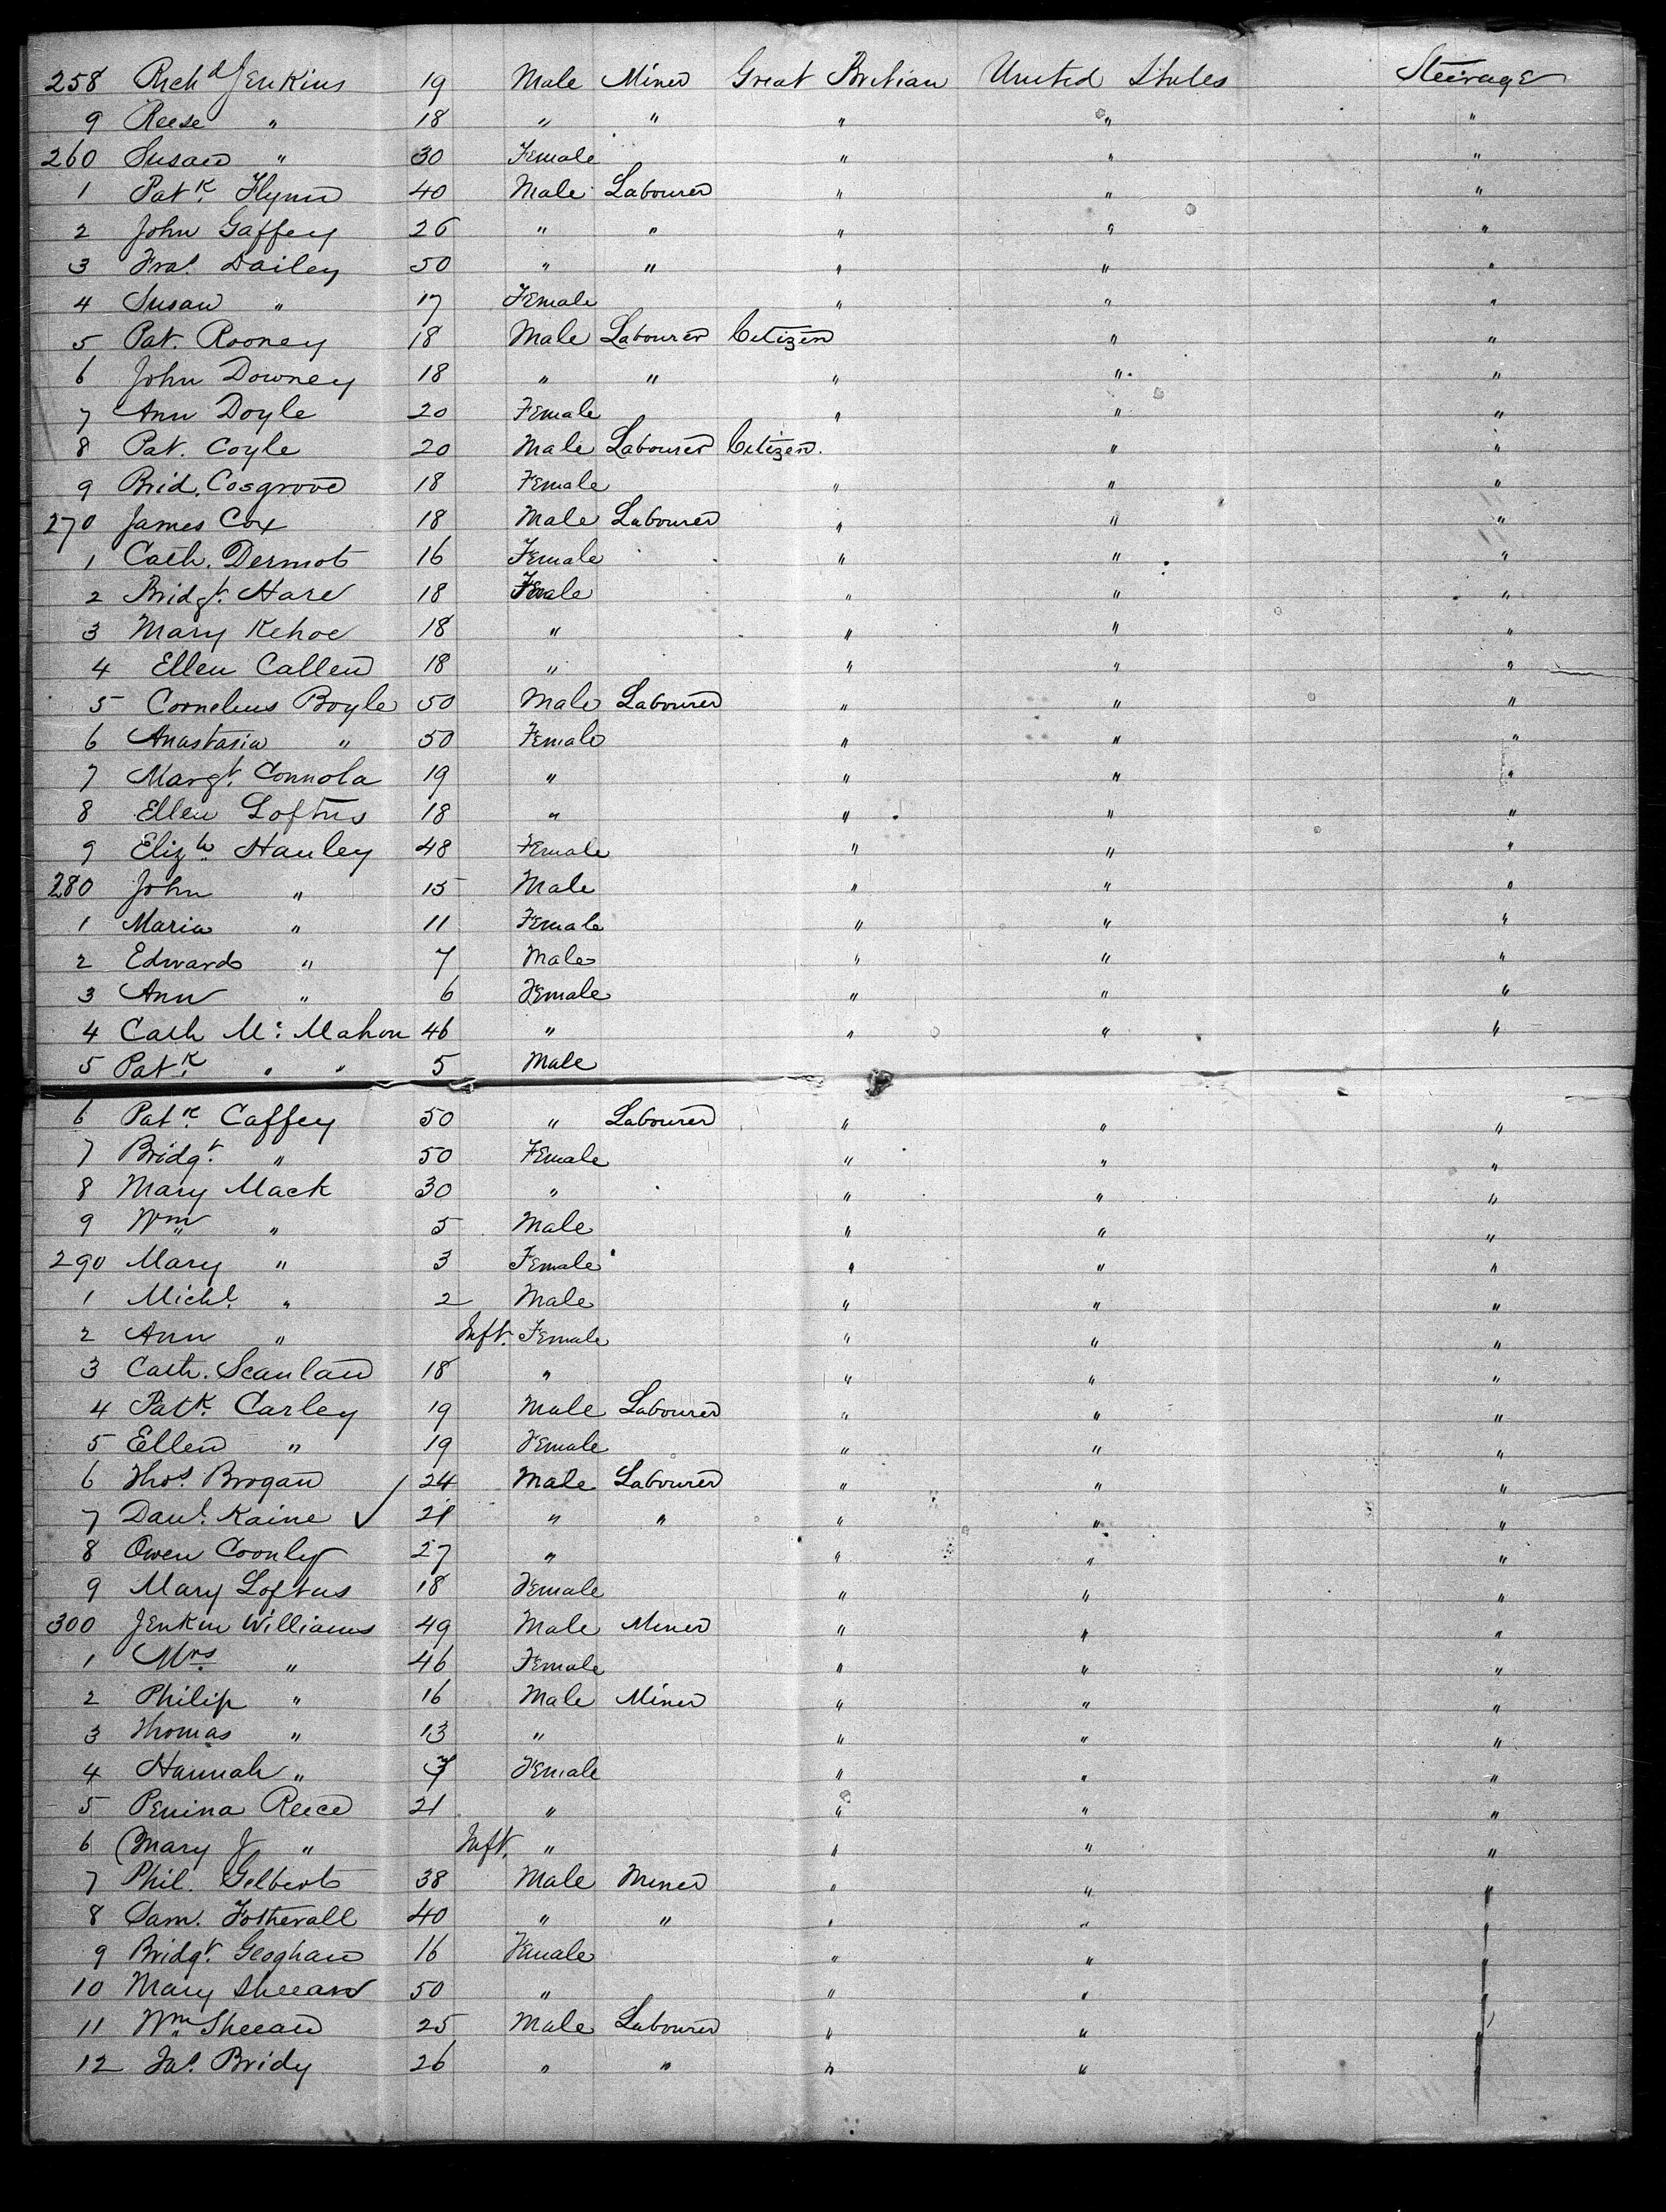 258 Richd Jenkins 19 Male Miner Great Britian United States Steerage
9 Reese " 18 " " " " "
260 Susan " 30 Female " " "
1 Patk. Flynn 40 Male Labourer " " "
2 John Gaffey 26 " " " " "
3 Fras. Dailey 50 " " " " "
4 Susan " 17 Female " " "
5 Pat. Rooney 18 Male Labourer Citizen " "
6 John Downey 18 " " " " "
7 Ann Doyle 20 Female " " "
8 Pat. Coyle 20 Male Labourer Citizen. " "
9 Brid. Cosgrove 18 Female " " "
270 James Cox 18 Male Labourer " " "
1 Cath. Dermot 16 Female " " "
2 Bridgt. Hare 18 Female " " "
3 Mary Kehoe 18 " " " "
4 Ellen Callen 18 " " " "
5 Cornelius Boyle 50 Male Labourer " " "
6 Anastasia " 50 Female " " "
7 Margt. Connola 19 " " " "
8 Ellen Loftus 18 " " " "
9 Elizh Hanley 48 Female " " "
280 John " 15 Male " " "
1 Maria " 11 Female " " "
2 Edward " 7 Male " " "
3 Ann " 6 Female " " "
4 Cath Mc Mahon 46 " " " "
5 Patk. " " 5 Male
6 Patk Caffey 50 " Labourer " " "
7 Bridgt. " 50 Female " " "
8 Mary Mack 30 " " " "
9 Wm " 5 Male " " "
290 Mary " 3 Female " " "
1 Michl. " 2 Male " " "
2 Ann " Inft. Female " " "
3 Cath. Scanlan 18 " " " "
4 Patk. Carley 19 Male Labourer " " "
5 Ellen " 19 Female " " "
6 Thos. Brogan 24 Male Labourer " " "
7 Danl. Kaine ✓ 21 " " " " "
8 Owen Coonly 27 " " " "
9 Mary Loftus 18 Female " " "
300 Jenkin Williams 49 Male Miner " " "
1 Mrs " 46 Female " " "
2 Philip " 16 Male Miner " " "
3 Thomas " 13 " " " "
4 Hannah " 7 Female " " "
5 Penina Reece 21 " " " "
6 Mary J " Inft. " " " "
7 Phil. Gelbert 38 Male Miner " " "
8 Sam. Fotherall 40 " " " "
9 Bridgt. Geoghan 16 Female " "
10 Mary Sheean 50 " " "
11 Wm Sheean 25 Male Labourer " "
12 Jas. Bridy 26 " " " "